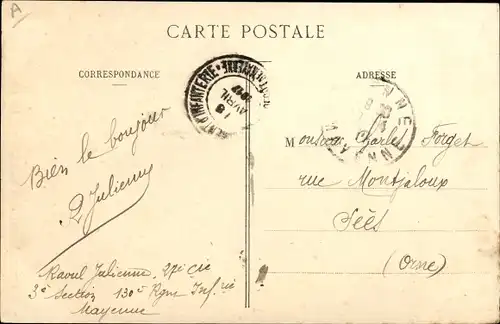 A
CARTE POSTALE
CORRESPONDANCE
ADRESSE
INFANTERIE
18
AVRIL
Bien le bonjour
R Julienne
Monsieur Charles Forget
rue Montjaloux
Sées
(Orne)
Raoul Julienne,
3e Section 130e Inf rie
Mayenne